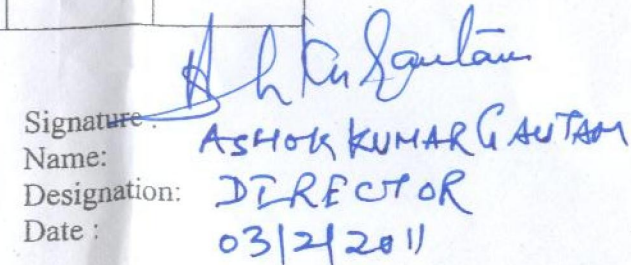 Ash Ku Gautam
Signature :
Name: ASHOK KUMAR GAUTAM
Designation: DIRECTOR
Date : 03/2/2011